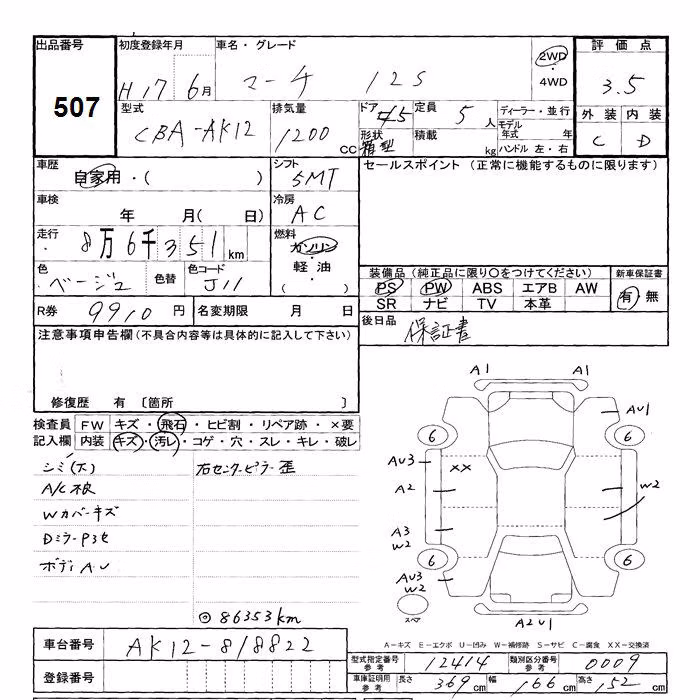 出品番号
507
初度登録年月
H17 6月
車名・グレード
マーチ 12S
2WD
・
4WD
評価点
3.5
外装 内装
C D
型式
CBA-AK12
排気量
1200
CC
ドア
45
形状
箱型
定員
5人
積載
kg
ディーラー・並行
モデル
年式 年
ハンドル 左・右
車歴
自家用・( )
シフト
5MT
セールスポイント (正常に機能するものに限ります)
車検
年 月( 日)
冷房
AC
走行
8万6千351km
燃料
ガソリン
・
軽油
( )
色
ベージュ
色替
色コード
J11
装備品(純正品に限り○をつけてください)
新車保証書
PS PW ABS エアB AW
SR ナビ TV 本革
有・無
R券 9910円
名変期限 月 日
後日品
保証書
注意事項申告欄(不具合内容等は具体的に記入して下さい)
修復歴 有 〔箇所 〕
検査員
記入欄
FW キズ・飛石・ヒビ割・リペア跡・×要
内装 キズ・汚レ・コゲ・穴・スレ・キレ・破レ
シミ(大)
右センターピラー歪
Wカバーキズ
ボディAU
◎86353km
A1 A1
AU1
6 6
AU3
××
A2
W2
A3
W2
6 6
AU3
W2
スペア
A2U1
A-キズ E-エクボ U-凹み W-補修跡 S-サビ C-腐食 XX-交換済
車台番号
AK12-818822
登録番号
型式指定番号
参考
12414
類別区分番号
参考
0009
車庫証明用
参考
長さ 369cm 幅 166cm 高さ 152cm